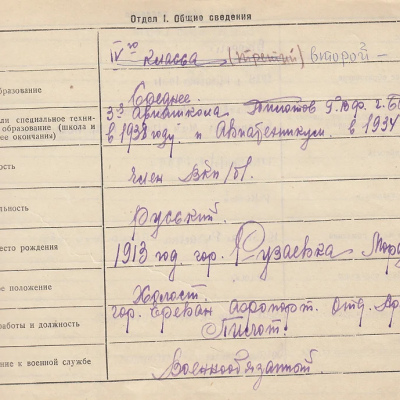 Отдел I. Общие сведения
IV го класса (третий) второй -
бразование
Среднее.
ли специальное техни-
образование (школа и
ее окончания)
3я Авиашкола. Пилотов
в 1938 году и Авиатехникум. в 1934
ость
член ВКП/б/.
льность
Русский.
есто рождения
1913 год. гор. Рузаевка Морд
ое положение
Холост.
работы и должность
гор. Ереван аэропорт. Отд.
Пилот.
ние к военной службе
Военнообязаный.